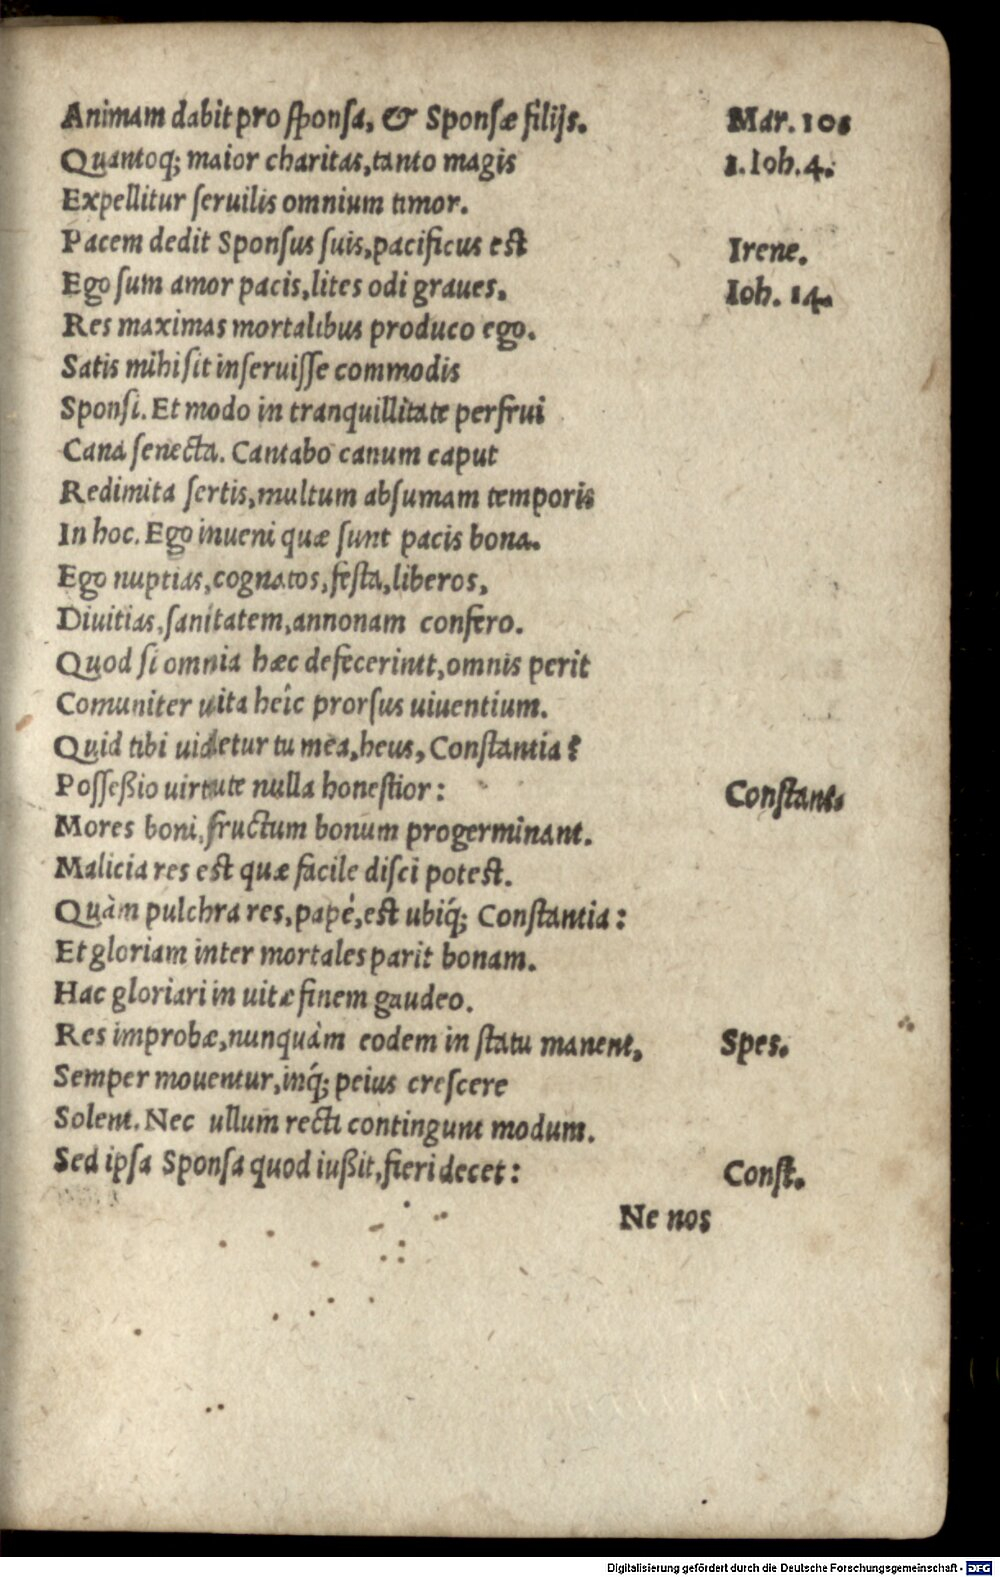 Animam dabit pro sponsa, & Sponsæ filijs. Mar. 10.
Quantoq; maior charitas, tanto magis 1. Ioh. 4.
Expellitur seruilis omnium timor.
Pacem dedit Sponsus suis, pacificus est Irene.
Ego sum amor pacis, lites odi graues. Ioh. 14.
Res maximas mortalibus produco ego.
Satis mihi sit inseruisse commodis
Sponsi. Et modo in tranquillitate perfrui
Cana senecta. Cantabo canum caput
Redimita sertis, multum absumam temporis
In hoc. Ego inueni quæ sunt pacis bona.
Ego nuptias, cognatos, festa, liberos,
Diuitias, sanitatem, annonam confero.
Quod si omnia hæc defecerint, omnis perit
Comuniter uita heîc prorsus uiuentium.
Quid tibi uidetur tu mea, heus, Constantia?
Posseßio uirtute nulla honestior: Constant.
Mores boni, fructum bonum progerminant.
Malicia res est quæ facile disci potest.
Quàm pulchra res, papé, est ubiq́; Constantia:
Et gloriam inter mortales parit bonam.
Hac gloriari in uitæ finem gaudeo.
Res improbæ, nunquàm eodem in statu manent, Spes.
Semper mouentur, inq́; peius crescere
Solent. Nec ullum recti contingunt modum.
Sed ipsa Sponsa quod iußit, fieri decet: Const.
Ne nos
Digitalisierung gefördert durch die Deutsche Forschungsgemeinschaft - DFG